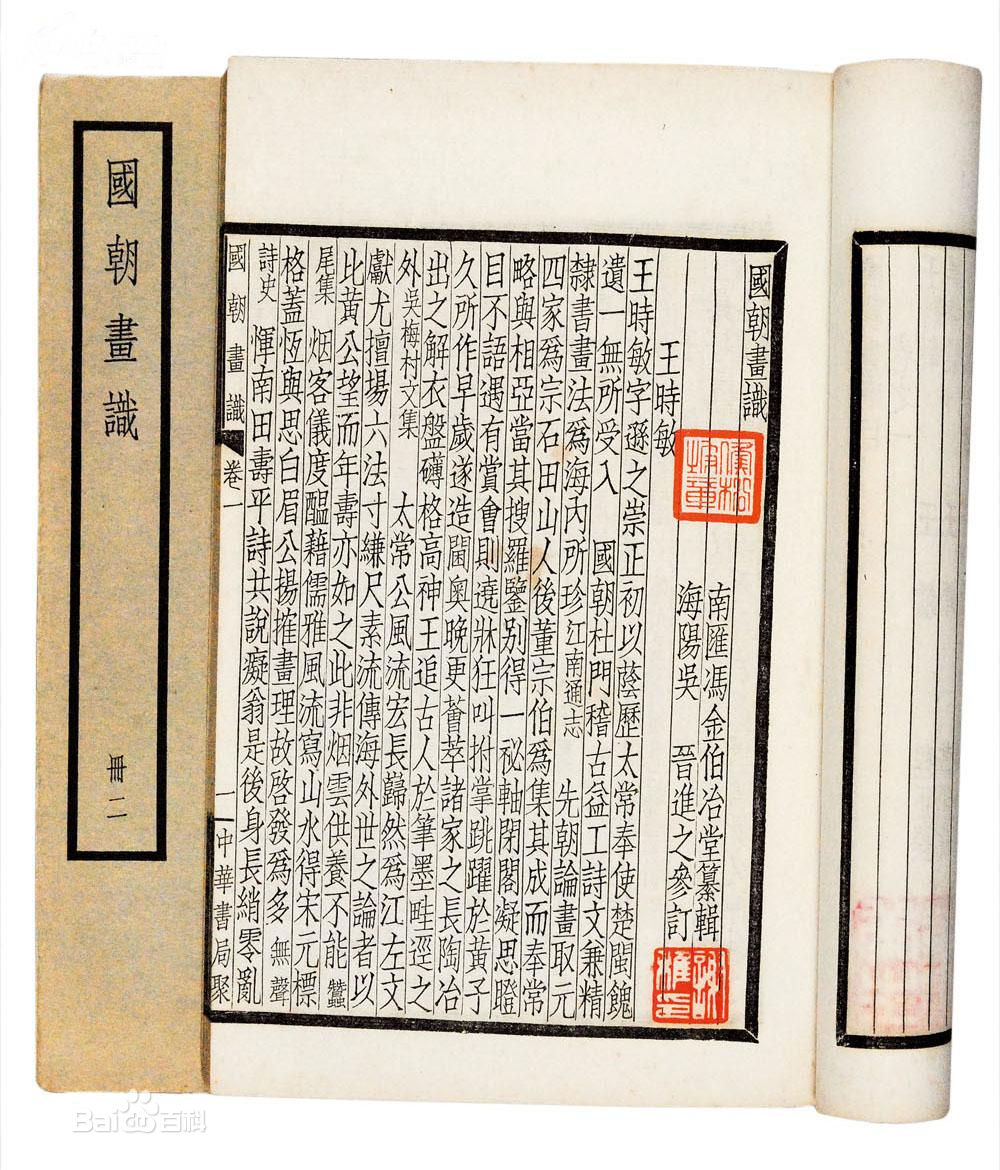 國朝畫識
冊二
國朝畫識
南匯馮金伯冶堂纂輯
海陽吳 晉進之參訂
王時敏
王時敏字遜之崇正初以蔭歷太常奉使楚閩餽
遺一無所受入 國朝杜門稽古益工詩文兼精
隸書畫法爲海內所珍江南通志 先朝論畫取元
四家爲宗石田山人後董宗伯爲集其成而奉常
略與相亞當其搜羅鑒別得一祕軸閉閣凝思瞪
目不語遇有賞會則遶牀狂叫拊掌跳躍於黃子
久所作早歲遂造閫奧晚更薈萃諸家之長陶冶
出之解衣盤礴格高神王追古人於筆墨畦逕之
外吳梅村文集 太常公風流宏長歸然爲江左文
獻尤擅場六法寸縑尺素流傳海外世之論者以
比黃公望而年壽亦如之此非烟雲供養不能蠶
尾集 烟客儀度醞藉儒雅風流寫山水得宋元標
格蓋恆與思白眉公揚搉畫理故啓發爲多無聲
詩史 惲南田壽平詩共說癡翁是後身長綃零亂
國朝畫識 卷一 一 中華書局聚
Bai百科